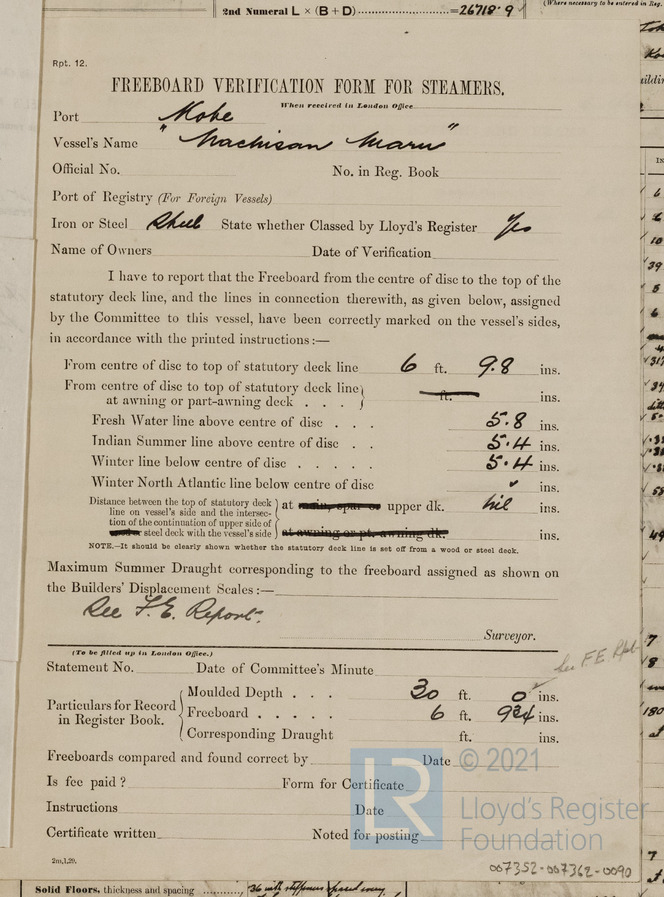 2nd Numeral L × (B + D) = 26718·9
(Where necessary to be entered in Reg.
Rpt. 12.
FREEBOARD VERIFICATION FORM FOR STEAMERS.
When received in London Office
Port Kobe
Vessel's Name "Nachisan Maru"
Official No. No. in Reg. Book
Port of Registry (For Foreign Vessels)
Iron or Steel Steel State whether Classed by Lloyd's Register Yes
Name of Owners Date of Verification
I have to report that the Freeboard from the centre of disc to the top of the
statutory deck line, and the lines in connection therewith, as given below, assigned
by the Committee to this vessel, have been correctly marked on the vessel's sides,
in accordance with the printed instructions:—
From centre of disc to top of statutory deck line 6 ft. 9.8 ins.
From centre of disc to top of statutory deck line
at awning or part-awning deck . . . ft. ins.
Fresh Water line above centre of disc . . . 5.8 ins.
Indian Summer line above centre of disc . . 5.4 ins.
Winter line below centre of disc . . . . . 5.4 ins.
Winter North Atlantic line below centre of disc ins.
Distance between the top of statutory deck
line on vessel's side and the intersec-
tion of the continuation of upper side of
wood or steel deck with the vessel's side
at main, spar or upper dk. nil ins.
at awning or pt. awning dk. ins.
NOTE.—It should be clearly shown whether the statutory deck line is set off from a wood or steel deck.
Maximum Summer Draught corresponding to the freeboard assigned as shown on
the Builders' Displacement Scales:—
See F.E. Report.
Surveyor.
(To be filled up in London Office.)
See F.E. Rpt.
Statement No. Date of Committee's Minute
Particulars for Record
in Register Book.
Moulded Depth . . . 30 ft. 0 ins.
Freeboard . . . . . 6 ft. ins.
Corresponding Draught ft. ins.
Freeboards compared and found correct by Date
Is fee paid? Form for Certificate
Instructions Date
Certificate written Noted for posting
2m,1,29.
© 2021
LR
Lloyd's Register
Foundation
007352-007362-0090
Solid Floors, thickness and spacing 36 with stiffeners spaced every